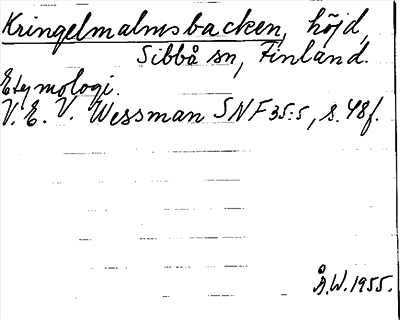 Kringelmalmsbacken, höjd,
Sibbå sn, Finland.
Etymologi.
V. E. V. Wessman SNF 35:5, s. 48 f.
Å.W. 1955.